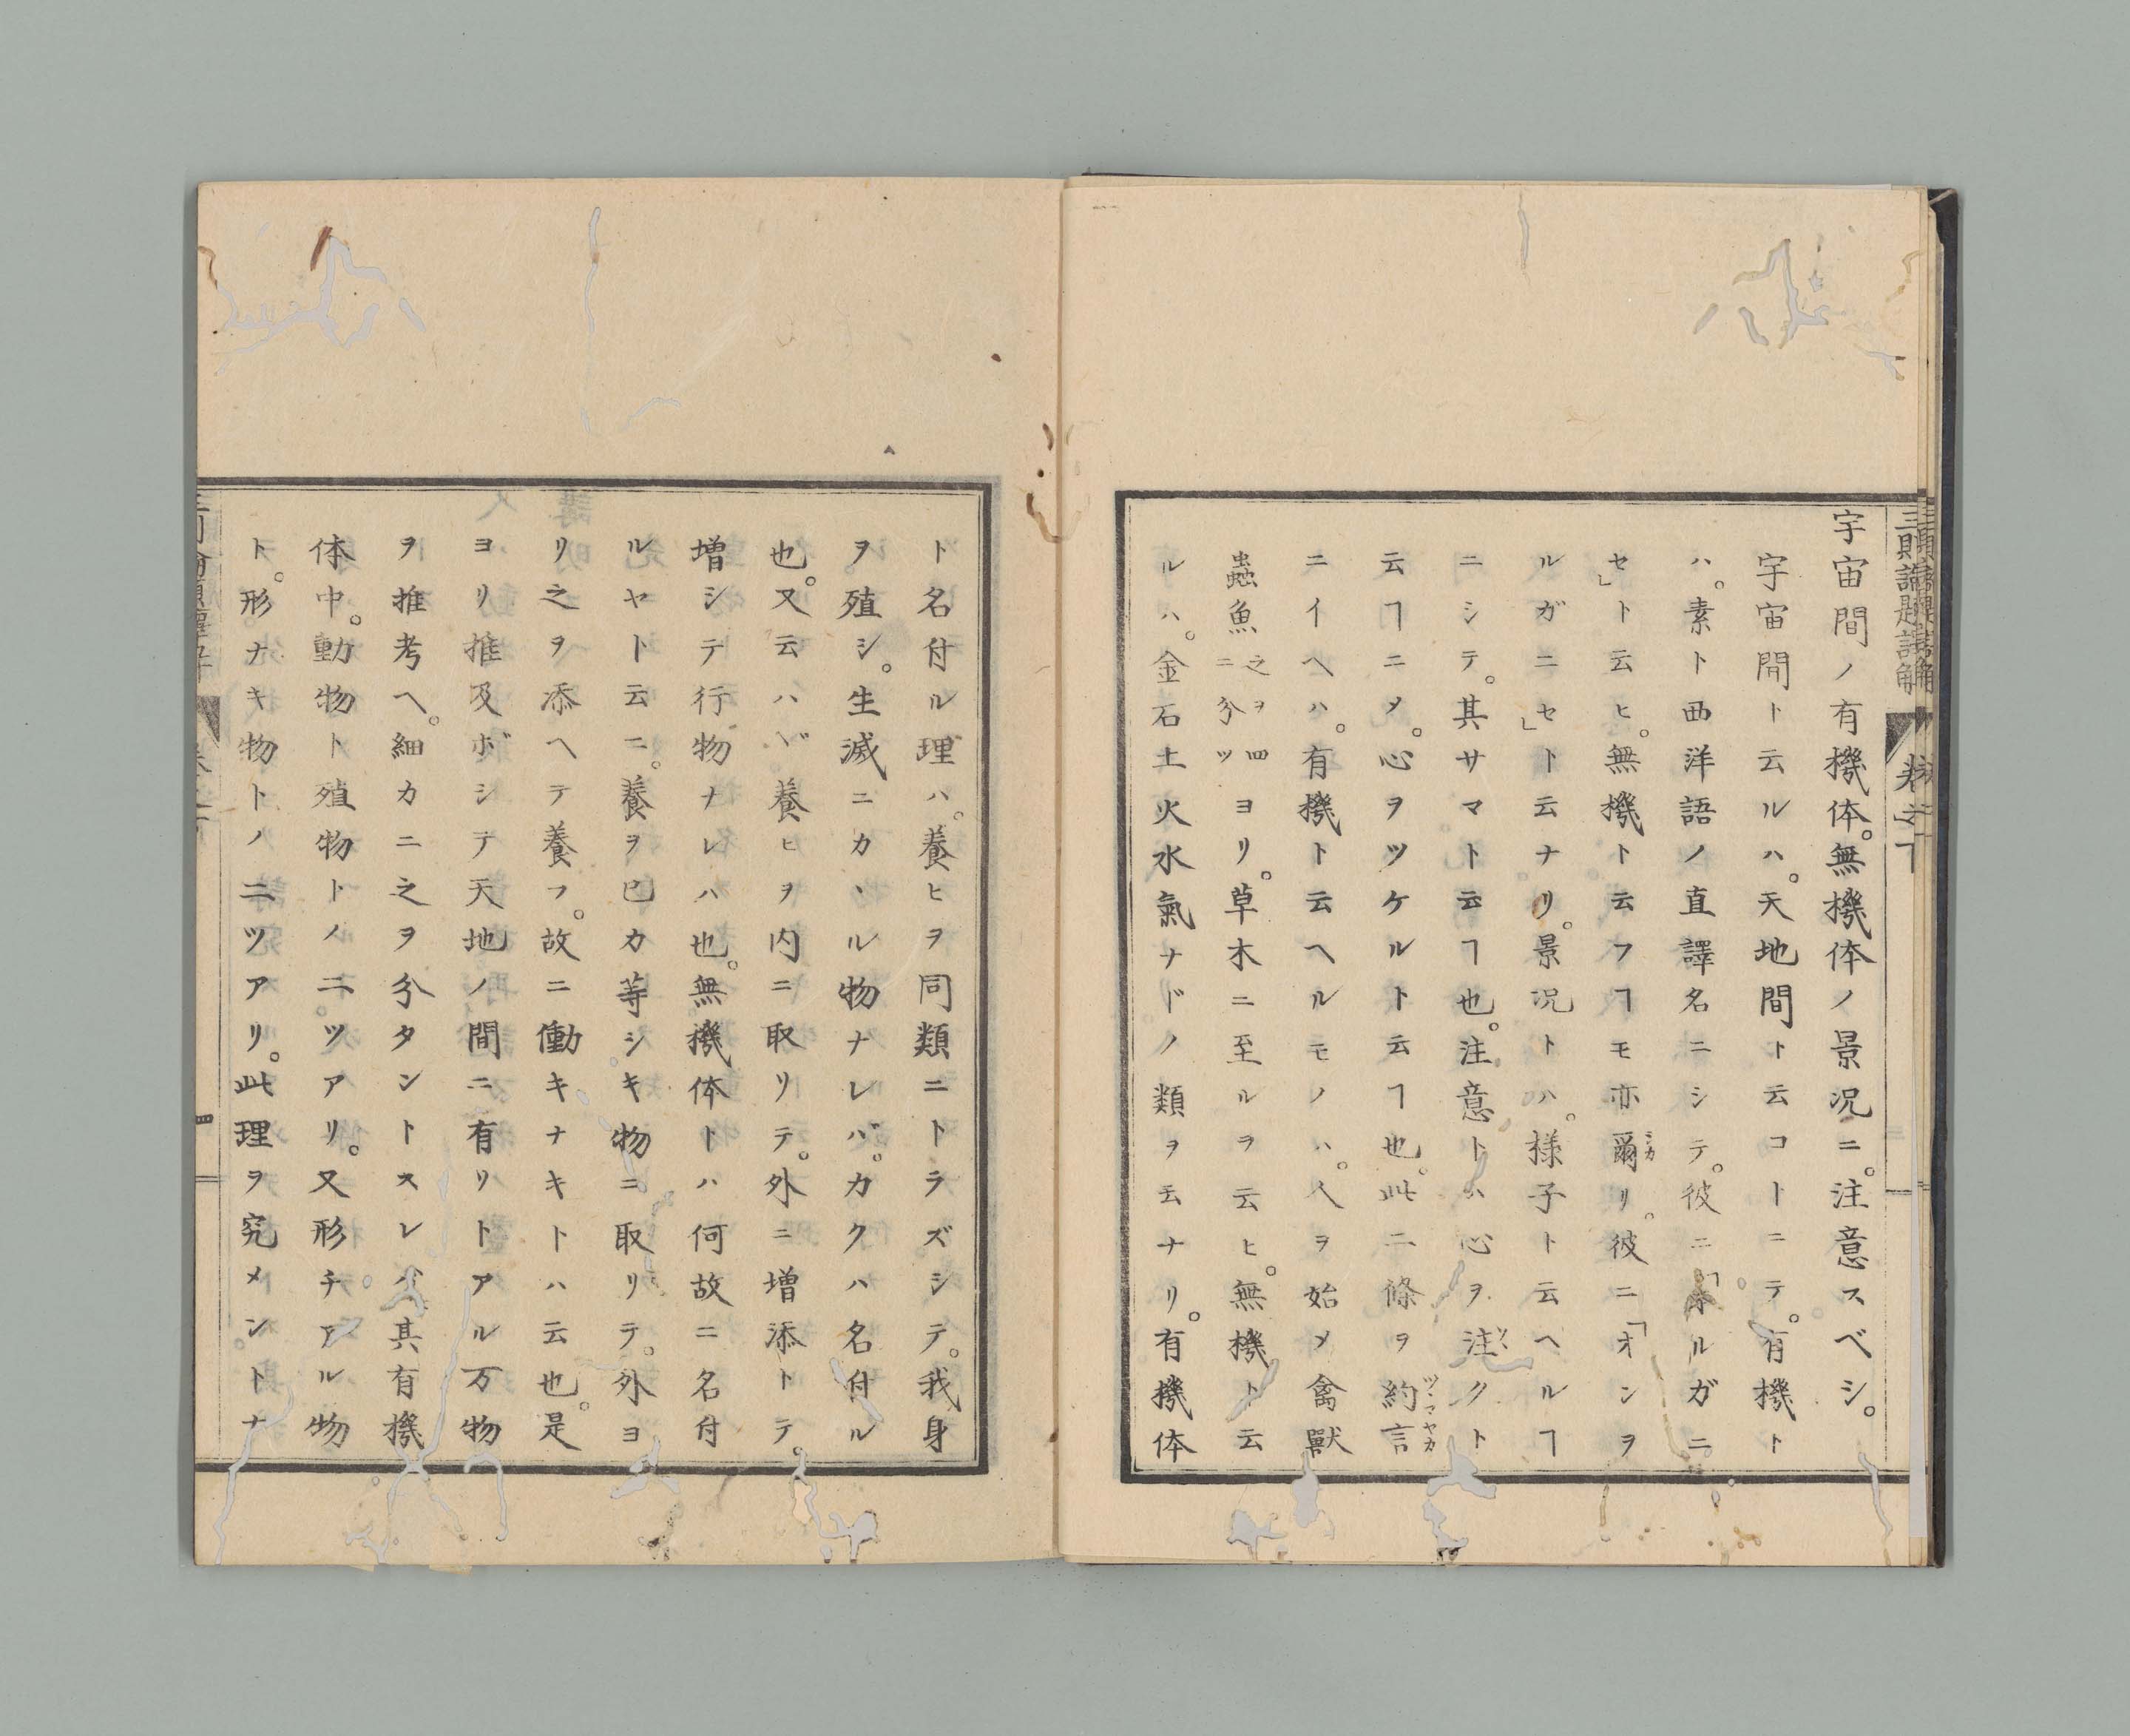 宇宙間ノ有機体。無機体ノ景況ニ。注意スベシ。
宇宙間ト云ルハ。天地間ト云コトニテ。有機ト
ハ。素ト西洋語ノ直譯名ニシテ。彼ニ「オルガニ
セ」ト云ヒ。無機ト云フヿモ亦爾リ。彼ニ「オンヲ
ルガニセ」ト云ナリ。景况トハ。樣子ト云ヘルヿ
ニシテ。其サマト云ヿ也。注意トハ心ヲ注クト
云ヿニメ。心ヲツケルト云ヿ也。此二條ヲ約言
ニイヘハ。有機ト云ヘルモノハ。人ヲ始メ禽獸
蟲魚之ヲ四ニ分ツヨリ。草木ニ至ルヲ云ヒ。無機ト云
ルハ。金石土火水氣ナドノ類ヲ云ナリ。有機体
ト名付ル理ハ。養ヒヲ同類ニトラズシテ。我身
ヲ殖シ。生滅ニカヽル物ナレバ。カクハ名付ル
也。又云ハヾ養ヒヲ内ニ取リテ。外ニ増添トテ。
増シテ行物ナレハ也。無機体トハ何故ニ名付
ルヤト云ニ。養ヲ已カ等シキ物ニ取リテ。外ヨ
リ之ヲ添ヘテ養フ。故ニ働キナキトハ云也。是
ヨリ推及ボシテ天地ノ間ニ有リトアル万物
ヲ推考ヘ。細カニ之ヲ分タントスレバ其有機
体中。動物ト殖物トノ二ツアリ。又形チアル物
ト。形ナキ物トノ二ツアリ。此理ヲ究メントナ